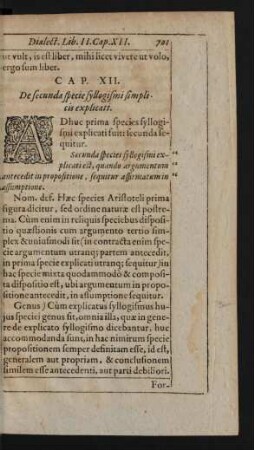 Dialect. Lib. II. Cap. XII. 701
ut vult, is est liber, mihi licet vivere ut volo,
ergo sum liber.
CAP. XII.
De secunda specie syllogismi simpli-
cis explicati.
ADhuc prima species syllogi-
smi explicati fuit: secunda se-
quitur.
Secunda species syllogismi ex-
plicati est, quando argumentum
antecedit in propositione, sequitur affirmatum in
assumptione.
Nom. def. Hæc species Aristoteli prima
figura dicitur, sed ordine naturæ est postre-
ma. Cùm enim in reliquis speciebus disposi-
tio quæstionis cum argumento tertio sim-
plex & uniusmodi sit (in contracta enim spe-
cie argumentum utranq; partem antecedit,
in prima specie explicati utranq; sequitur) in
hac specie mixta quodammodò & composi-
ta dispositio est, ubi argumentum in propo-
sitione antecedit, in assumptione sequitur.
Genus) Cùm explicatus syllogismus hu-
jus speciei genus sit, omnia illa, quæ in gene-
re de explicato syllogismo dicebantur, huc
accommodanda sunt, in hac nimirum specie
propositionem semper definitam esse, id est,
generalem aut propriam, & conclusionem
similem esse antecedenti, aut parti debiliori.
For-